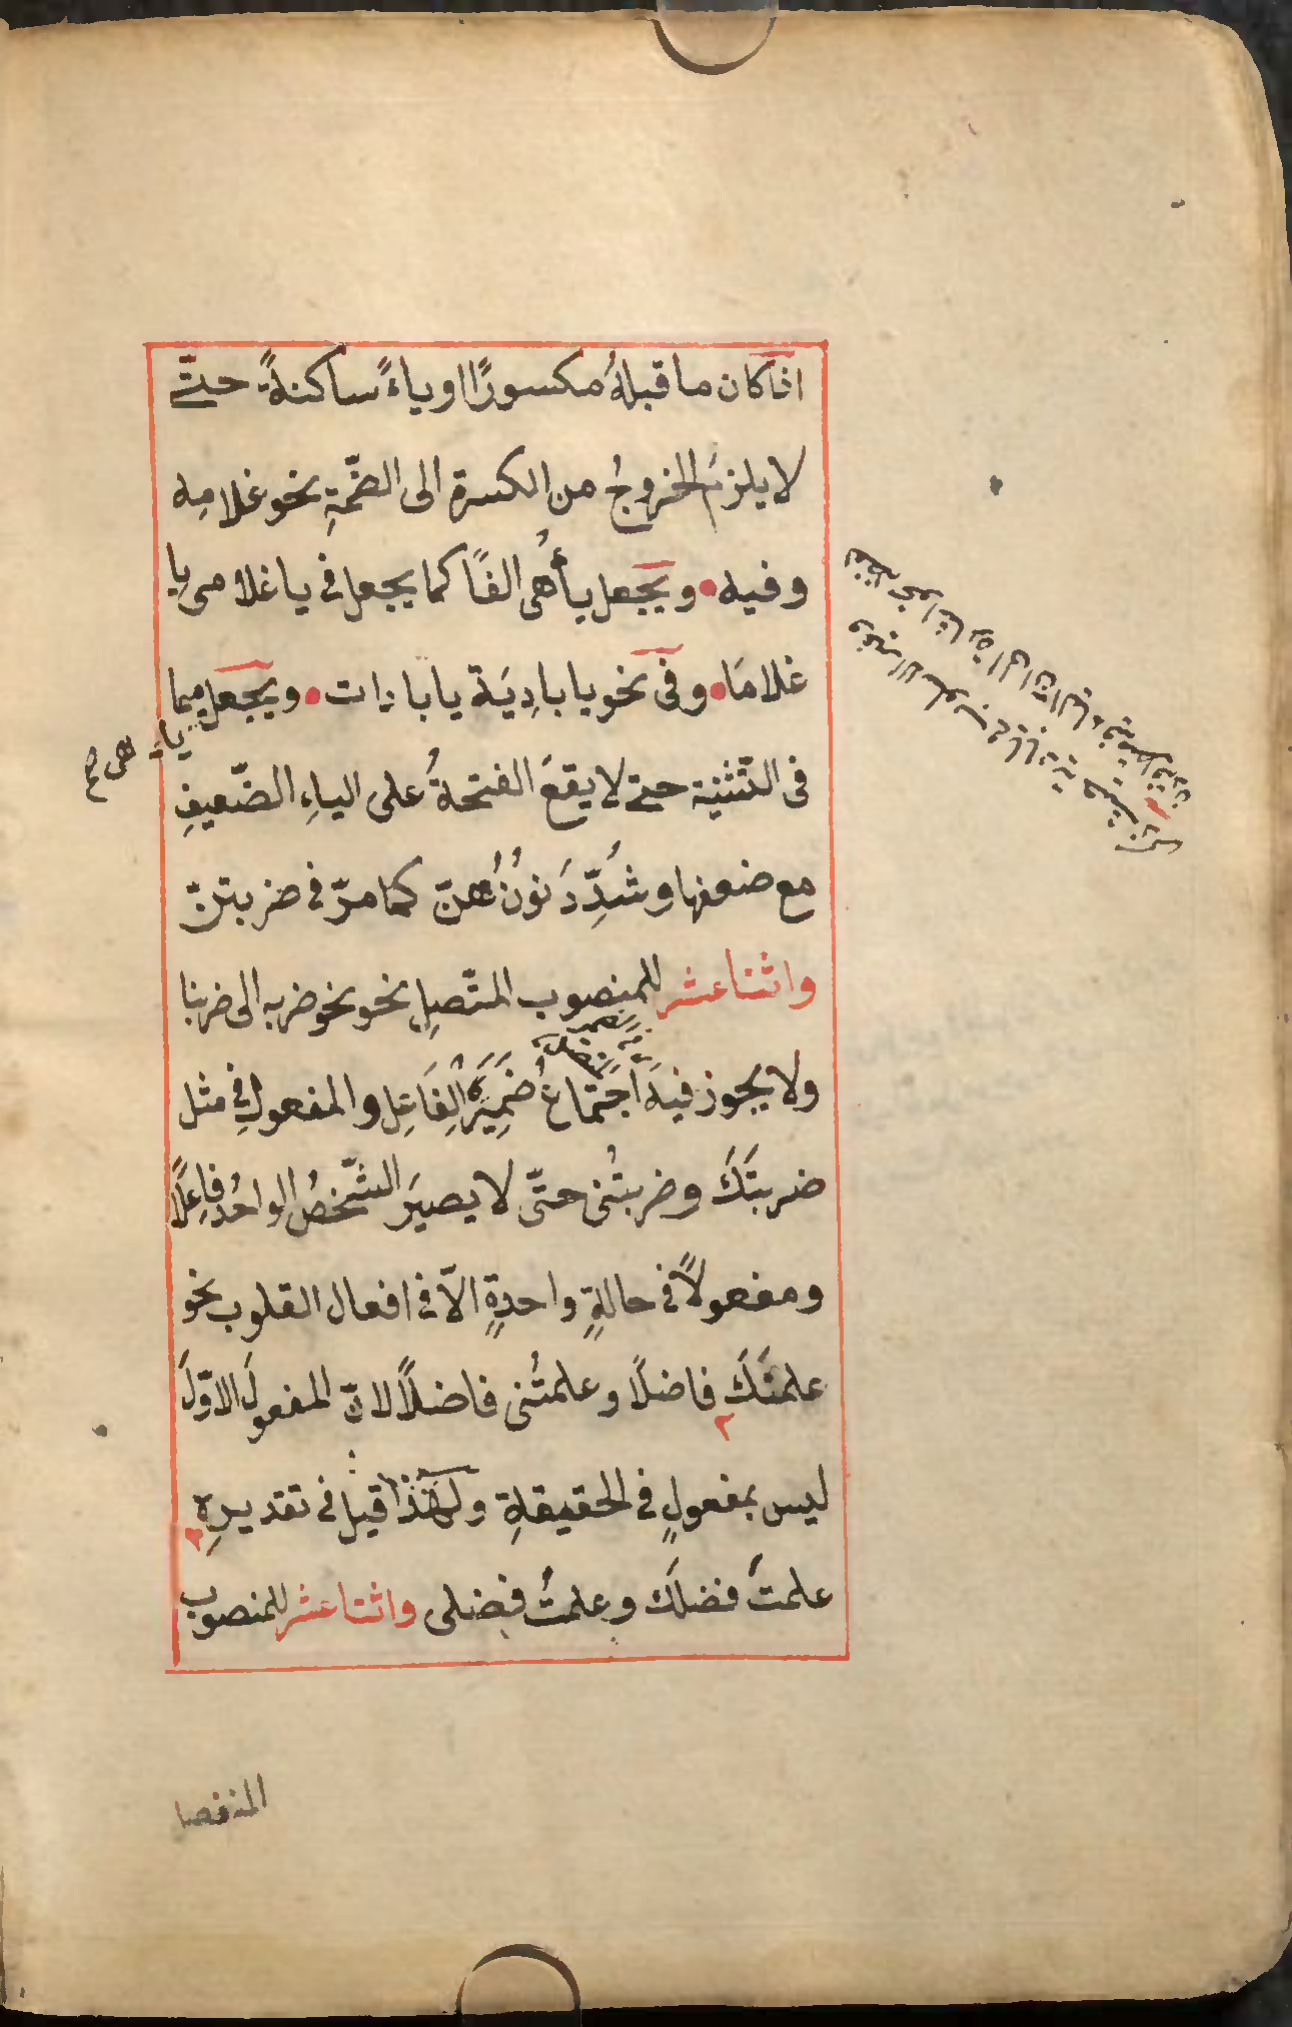 اذا كان ما قبلهُ مكسورًا او ياءً ساكنةً حتّے
لا يلزمَ الخروجُ من الكسرة الى الضّمّةِ نحو غلامِه
وفيه • ويجعل ياُ هى الفًا كما يجعل فى يا غلامى يا
غلامَا • وفى نحو يا بادِيَة يا باداة • ويجعل ميما
ياء
فى التّثنية حتے لا يقعَ الفتحةُ على الياءِ الضّعيفِ
مع ضعفها وشُدِّدَ نونُ هُنّ كما مرّ فى ضربتنّ
واثنا عشر للمنصوب المتّصلِ نحو نحو ضربه الى ضربنا
ولا يجوز فيه اجتماعُ ضميرَىِ الفاعِلِ والمفعولِ فى مثل
ضربتَكَ وضربتُنى حتّى لا يصيَر الشّخصُ الواحدُ فاعِلًا
ومفعولاً فى حالةٍ واحدةٍ الاّ فى افعال القلوب نحو
علمتَكَ فاضلًا وعلمتُنى فاضلًا لانّ المفعولَ الاوّلَ
ليس بمفعولٍ فى الحقيقةِ ولهذا قيل فى تقديرِهِ
علمتَ فضلَكَ وعلمتُ فضلى واثنا عشر للمنصوب
المنفصل